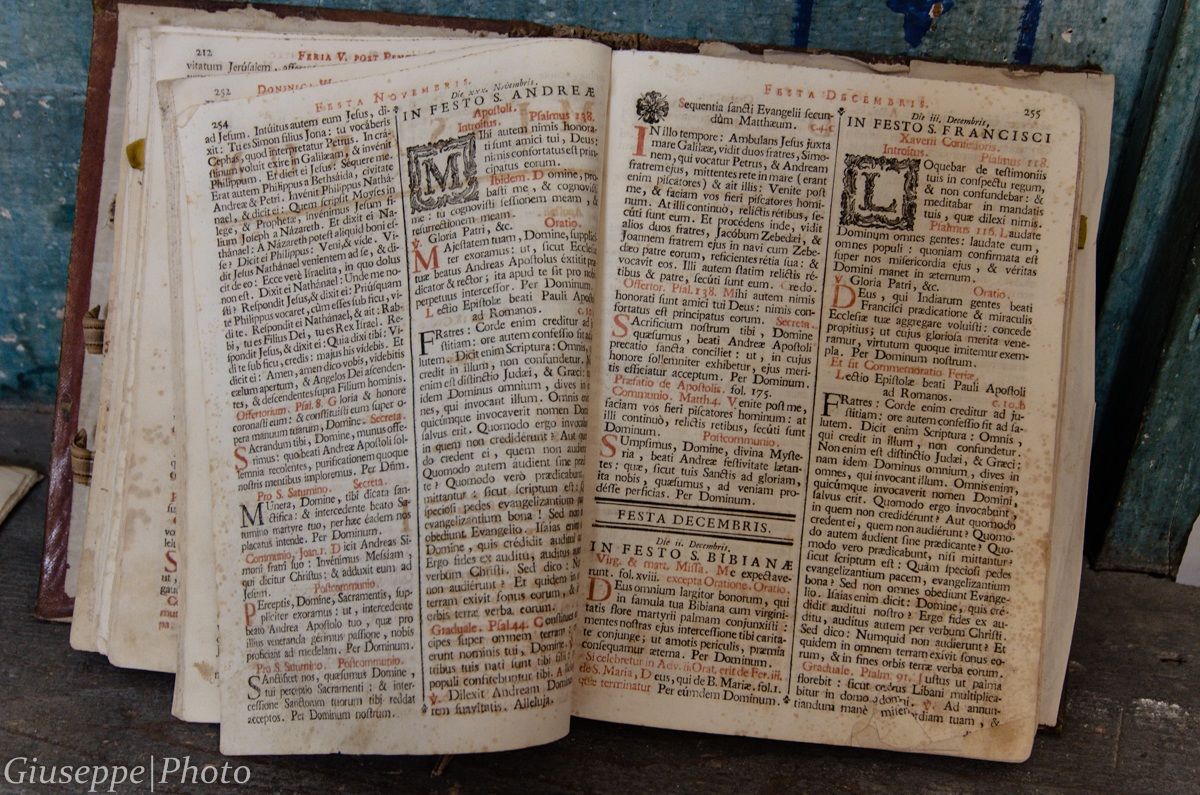 212
FERIA V. POST
vitatum Jerúsalem
252
DOMINICA
254
FESTA NOVEMBRIS.
ad Jesum. Intúitus autem eum Jesus, di-
xit: Tu es Simon filius Jona: tu vocáberis
Cephas, quod interpretatur Petrus. In crá-
stinum voluit exire in Galilæam, & invénit
Philippum. Et dicit ei Jesus: Séquere me.
Erat autem Philippus a Bethsáida, civitate
Andreæ & Petri. Invénit Philippus Nathá-
nael, & dicit ei: Quem scripsit Moyses in
lege, & Prophetæ, invénimus Jesum fi-
lium Joseph a Názareth. Et dixit ei Na-
thánael: A Názareth potest aliquid boni es-
se? Dicit ei Philippus: Veni, & vide. Vi-
dit Jesus Nathánael venientem ad se, & di-
cit de eo: Ecce verè Israelita, in quo dolus
non est. Dixit ei Nathánael: Unde me no-
sti? Respondit Jesus, & dixit ei: Priúsquam
te Philippus vocaret, cùm esses sub ficu, vi-
di te. Respondit ei Nathánael, & ait: Rab-
bi, tu es Filius Dei, tu es Rex Israel. Re-
spondit Jesus, & dixit ei: Quia dixi tibi: Vi-
di te sub ficu, credis: majus his videbis. Et
dicit ei: Amen, amen dico vobis, videbitis
cælum apertum, & Angelos Dei ascenden-
tes, & descendentes supra Filium hominis.
Offertorium. Psal. 8. Gloria & honore
coronasti eum: & constituisti eum super o-
pera manuum tuarum, Domine. Secreta.
Sacrandum tibi, Domine, munus offe-
rimus: quo beati Andreæ Apostoli sol-
lemnia recolentes, purificationem quoque
nostris mentibus implorámus. Per Dñm.
Pro S. Saturnino. Secreta.
Munera, Domine, tibi dicata san-
ctifica: & intercedente beato Sa-
turnino martyre tuo, per hæc éadem nos
placatus intende. Per Dominum.
Communio, Joan. 1. Dicit Andreas Si-
moni fratri suo: Invénimus Messiam,
qui dicitur Christus: & adduxit eum ad
Jesum. Postcommunio.
Perceptis, Domine, Sacramentis, sup-
pliciter exoramus: ut, intercedente
beato Andrea Apostolo tuo, quæ pro
illius veneranda gérimus passione, nobis
proficiant ad medelam. Per Dominum.
Pro S. Saturnino. Postcommunio.
Sanctificet nos, quæsumus, Domine,
tui perceptio Sacramenti: & inter-
cessione Sanctorum tuorum tibi reddat
acceptos. Per Dominum nostrum.
Die xxx. Novembris,
IN FESTO S. ANDREÆ
Apostoli.
Introitus. Psalmus 138.
Mihi autem nimis honora-
ti sunt amici tui, Deus:
nimis confortatus est prin-
cipatus eorum.
Ibidem. Domine, pro-
basti me, & cognovisti
me: tu cognovisti sessionem meam, &
resurrectionem meam.
℣. Gloria Patri, &c. Oratio.
Majestatem tuam, Domine, supplici-
ter exoramus: ut, sicut Ecclesiæ
tuæ beatus Andreas Apostolus éxtitit præ-
dicator & rector; ita apud te sit pro nobis
perpetuus intercessor. Per Dominum.
Lectio Epistolæ beati Pauli Aposto
ad Romanos. c. 10.
FRatres: Corde enim creditur ad
stitiam: ore autem confessio fit ad
lutem. Dicit enim Scriptura: Omnis,
credit in illum, non confundetur. N
enim est distinctio Judæi, & Græci:
idem Dominus omnium, dives in
nes, qui invocant illum. Omnis en
quicúmque invocáverit nomen Don
salvus erit. Quomodo ergo invocab
in quem non credidérunt? Aut quo
do credent ei, quem non audier
Quomodo autem áudient sine præd
te? Quomodo verò prædicabunt,
mittantur? sicut scriptum est: Q
speciosi pedes evangelizantium p
evangelizantium bona! Sed non
obediunt Evangelio. Isaias enim
Domine, quis crédidit auditui
Ergo fides ex auditu, auditus aut
verbum Christi. Sed dico: Nu
non audiérunt? Et quidem in
terram exivit sonus eorum, & i
orbis terræ verba eorum.
Graduale. Psal. 44. Constitues
cipes super omnem terram:
erunt nominis tui, Domine. ℣
tribus tuis nati sunt tibi filii:
populi confitebuntur tibi. A
℣. Dilexit Andream Domin
rem suavitatis. Alleluja.
FESTA DECEMBRIS.
255
Sequentia sancti Evangelii secun-
dùm Matthæum. c. 4. c
IN illo tempore: Ambulans Jesus juxta
mare Galilææ, vidit duos fratres, Simo-
nem, qui vocatur Petrus, & Andream
fratrem ejus, mittentes rete in mare (erant
enim piscatores) & ait illis: Venite post
me, & faciam vos fieri piscatores homi-
num. At illi continuò, relictis rétibus, se-
cúti sunt eum. Et procédens inde, vidit
alios duos fratres, Jacóbum Zebedæi, &
Joannem fratrem ejus in navi cum Zebe-
dæo patre eorum, reficientes rétia sua: &
vocavit eos. Illi autem statim relictis ré-
tibus & patre, secúti sunt eum. Credo.
Offertor. Psal. 138. Mihi autem nimis
honorati sunt amici tui Deus: nimis con-
fortatus est principatus eorum. Secreta.
Sacrificium nostrum tibi, Domine
quæsumus, beati Andreæ Apostoli
precatio sancta conciliet: ut, in cujus
honore sollemniter exhibetur, ejus meri-
tis efficiatur acceptum. Per Dominum.
Præfatio de Apostolis. fol. 175.
Communio. Matth. 4. Venite post me,
faciam vos fieri piscatores hominum: at
illi continuò, relictis retibus, secúti sunt
Dominum. Postcommunio.
Sumpsimus, Domine, divina Myste-
ria, beati Andreæ festivitate lætan-
tes: quæ, sicut tuis Sanctis ad gloriam,
ita nobis, quæsumus, ad veniam pro-
désse perficias. Per Dominum.
FESTA DECEMBRIS.
Die ii. Decembris,
IN FESTO S. BIBIANÆ
Virg. & mart. Missa. Me expectave-
runt. fol. xviii. excepta Oratione. Oratio.
Deus omnium largitor bonorum, qui
in famula tua Bibiana cum virgini-
tatis flore martyrii palmam conjunxisti:
mentes nostras ejus intercessione tibi carita-
te conjunge; ut amotis periculis, præmia
consequamur æterna. Per Dominum.
Si celebretur in Adv. iii Orat. erit de Fer. iii.
de S. Maria, Deus, qui de B. Mariæ. fol. 1.
quæ terminatur Per eúmdem Dominum.
Die iii. Decembris,
IN FESTO S. FRANCISCI
Xaverii Confessoris.
Introitus. Psalmus 118.
LOquebar de testimoniis
tuis in conspectu regum,
& non confundebar: &
meditabar in mandatis
tuis, quæ dilexi nimis.
Psalmus 116. Laudate
Dominum omnes gentes: laudate eum,
omnes populi: quoniam confirmata est
super nos misericordia ejus, & véritas
Domini manet in æternum.
℣. Gloria Patri, &c. Oratio.
Deus, qui Indiarum gentes beati
Francisci prædicatione & miraculis
Ecclesiæ tuæ aggregare voluisti: concede
propitius; ut cujus gloriosa merita vene-
ramur, virtutum quoque imitemur exem-
pla. Per Dominum nostrum.
Et fit Commemoratio Feriæ.
Lectio Epistolæ beati Pauli Apostoli
ad Romanos. c. 10. b
FRatres: Corde enim creditur ad ju-
stitiam: ore autem confessio fit ad sa-
lutem. Dicit enim Scriptura: Omnis,
qui credit in illum, non confundetur.
Non enim est distinctio Judæi, & Græci:
nam idem Dominus omnium, dives in
omnes, qui invocant illum. Omnis enim,
quicúmque invocáverit nomen Domini,
salvus erit. Quomodo ergo invocabunt,
in quem non credidérunt? Aut quomodo
credent ei, quem non audiérunt? Quomo-
do autem áudient sine prædicante? Quo-
modo vero prædicabunt, nisi mittantur?
sicut scriptum est: Quàm speciosi pedes
evangelizantium pacem, evangelizantium
bona? Sed non omnes obediunt Evange-
lio. Isaias enim dicit: Domine, quis cré-
didit auditui nostro? Ergo fides ex au-
ditu, auditus autem per verbum Christi.
Sed dico: Numquid non audierunt? Et
quidem in omnem terram exivit sonus eo-
rum, & in fines orbis terræ verba eorum.
Graduale. Psalm. 91. Justus ut palma
florebit: sicut cedrus Libani multiplica-
bitur in domo Domini. ℣. Ad annun-
tiandum manè misericordiam tuam, &
Giuseppe|Photo